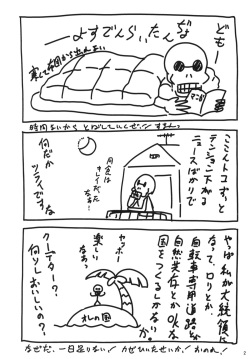 どもー
なぜ
だんたいらんでですよー
寒くて布団から出れない
マンガ
時間ないからとばしていくぜ!! すまんっ
ここんトコずっと
テンション下がる
ニュースばかりで
月金は
きれい
だったなぁ…
何だか
ツライっスな
やっぱ私が大統領に
なって、ロリとか
自転車専用道路とか
自然共存とかOKな
国をつくるしかないか。
ヤッホー
楽しいなぁ
オレの国
クーデター!?
何りしおいしいの?
なぜだ、一日足りない! カゼひいたせいか! おのれ!